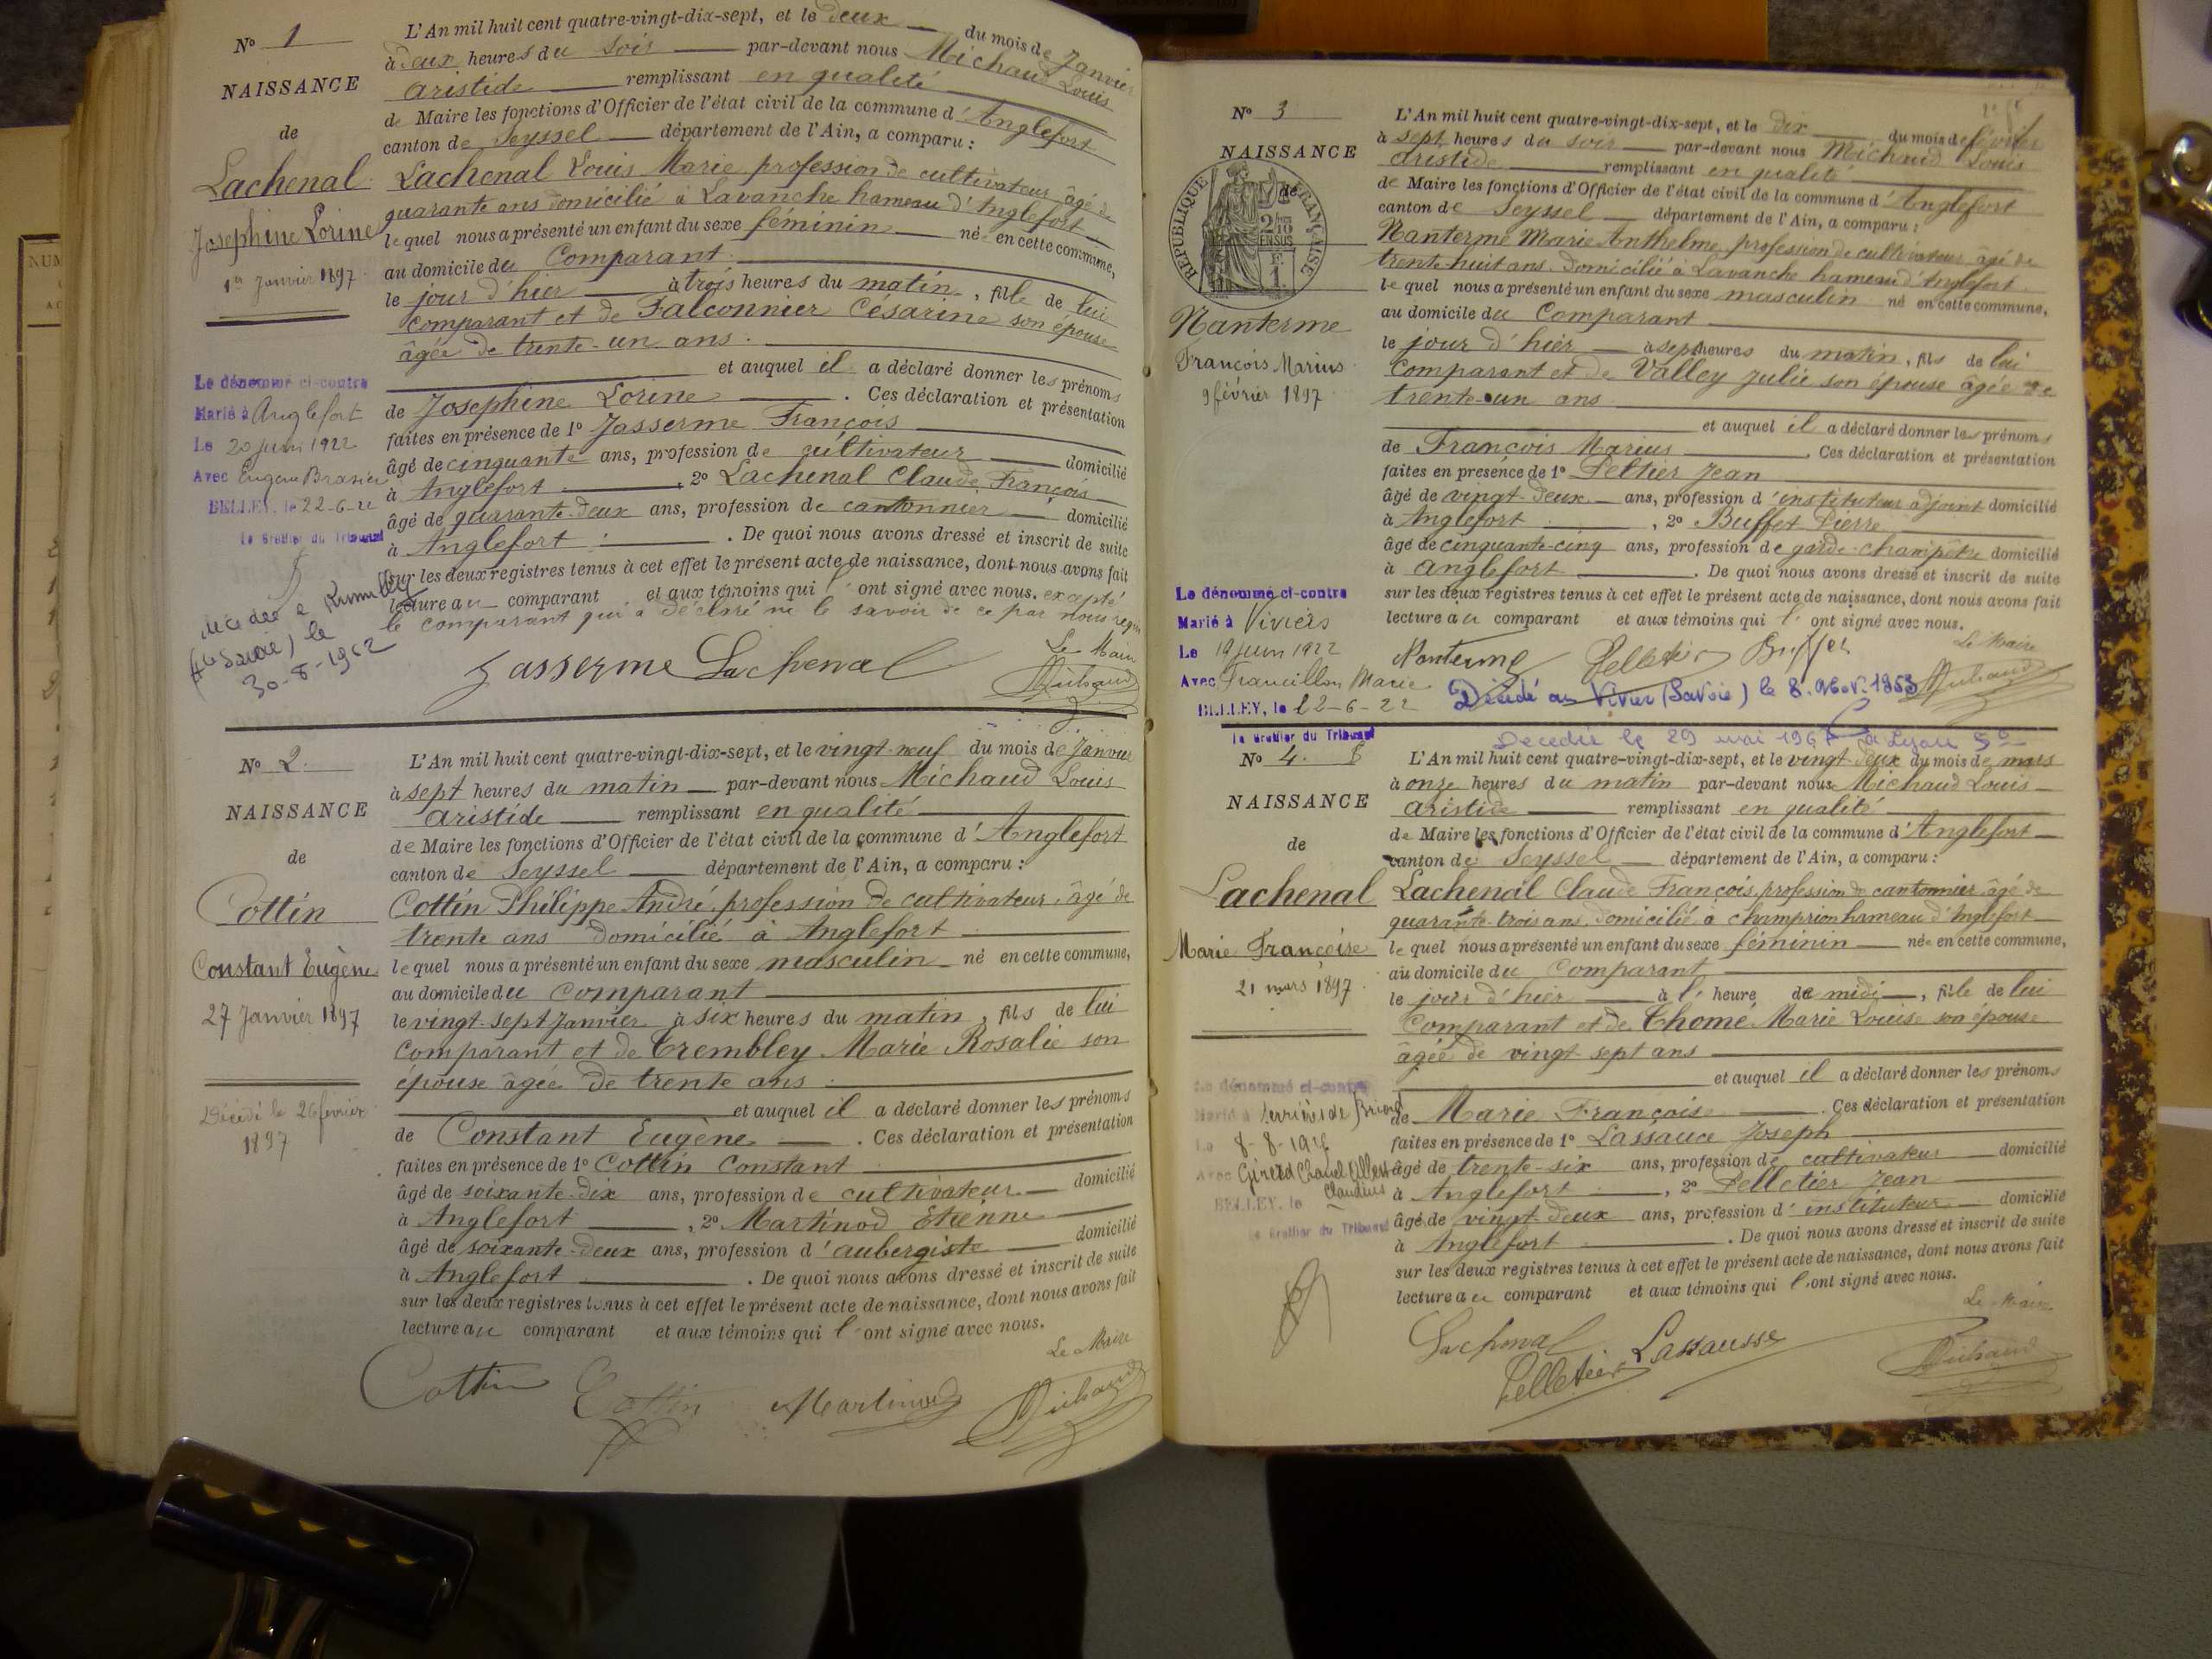 N° 1
NAISSANCE
de
Lachenal
Josephine Lorine
1er Janvier 1897
Le dénommé ci-contre
Marié à Anglefort
Le 20 juin 1922
Avec Eugène Brasier
BELLEY, le 22-6-22
Le Greffier du Tribunal
décédée à Rumilly
(Hte Savoie) le
30-8-1962
L'An mil huit cent quatre-vingt-dix-sept, et le deux du mois de Janvier
à deux heures du soir par-devant nous Michaud Louis
aristide remplissant en qualité
de Maire les fonctions d'Officier de l'état civil de la commune d'Anglefort
canton de Seyssel département de l'Ain, a comparu :
Lachenal Louis Marie profession de cultivateur âgé de
quarante ans domicilié à Lavanche hameau d'Anglefort
lequel nous a présenté un enfant du sexe féminin née en cette commune,
au domicile du Comparant
le jour d'hier à trois heures du matin, fille de lui
comparant et de Falconnier Césarine son épouse
âgée de trente-un ans.
et auquel il a déclaré donner les prénoms
de Josephine Lorine. Ces déclaration et présentation
faites en présence de 1° Jasserme François
âgé de cinquante ans, profession de cultivateur domicilié
à Anglefort, 2° Lachenal Claude François
âgé de quarante-deux ans, profession de cantonnier domicilié
à Anglefort. De quoi nous avons dressé et inscrit de suite
sur les deux registres tenus à cet effet le présent acte de naissance, dont nous avons fait
lecture au comparant et aux témoins qui l'ont signé avec nous, excepté
le comparant qui a déclaré ne le savoir de ce par nous requis
Jasserme Lachenal
Le Maire
Michaud
N° 2
NAISSANCE
de
Cottin
Constant Eugène
27 Janvier 1897
Décédé le 26 février
1897
L'An mil huit cent quatre-vingt-dix-sept, et le vingt-neuf du mois de Janvier
à sept heures du matin par-devant nous Michaud Louis
aristide remplissant en qualité
de Maire les fonctions d'Officier de l'état civil de la commune d'Anglefort
canton de Seyssel département de l'Ain, a comparu :
Cottin Philippe André, profession de cultivateur, âgé de
trente ans domicilié à Anglefort
lequel nous a présenté un enfant du sexe masculin né en cette commune,
au domicile du comparant
le vingt-sept Janvier à six heures du matin, fils de lui
comparant et de Trembley Marie Rosalie son
épouse âgée de trente ans
et auquel il a déclaré donner les prénoms
de Constant Eugène. Ces déclaration et présentation
faites en présence de 1° Cottin Constant
âgé de soixante-dix ans, profession de cultivateur domicilié
à Anglefort, 2° Martinod Etienne
âgé de soixante-deux ans, profession d'aubergiste domicilié
à Anglefort. De quoi nous avons dressé et inscrit de suite
sur les deux registres tenus à cet effet le présent acte de naissance, dont nous avons fait
lecture au comparant et aux témoins qui l'ont signé avec nous.
Le Maire
Cottin Cottin Martinod Michaud
N° 3
NAISSANCE
de
RÉPUBLIQUE FRANÇAISE
2/10 EN SUS
1 F.
Nanterme
François Marius
9 février 1897
Le dénommé ci-contre
Marié à Viviers
Le 19 juin 1922
Avec Francillon Marie
BELLEY, le 22-6-22
Le Greffier du Tribunal
L'An mil huit cent quatre-vingt-dix-sept, et le dix du mois de février
à sept heures du soir par-devant nous Michaud Louis
aristide remplissant en qualité
de Maire les fonctions d'Officier de l'état civil de la commune d'Anglefort
canton de Seyssel département de l'Ain, a comparu :
Nanterme Marie Anthelme, profession de cultivateur âgé de
trente-huit ans. Domicilié à Lavanche hameau d'Anglefort
lequel nous a présenté un enfant du sexe masculin né en cette commune,
au domicile du Comparant
le jour d'hier à sept heures du matin, fils de lui
comparant et de Valley Julie son épouse âgée de
trente-un ans
et auquel il a déclaré donner les prénoms
de François Marius. Ces déclaration et présentation
faites en présence de 1° Peltier Jean
âgé de vingt-deux ans, profession d'instituteur adjoint domicilié
à Anglefort, 2° Buffet Pierre
âgé de cinquante-cinq ans, profession de garde-champêtre domicilié
à anglefort. De quoi nous avons dressé et inscrit de suite
sur les deux registres tenus à cet effet le présent acte de naissance, dont nous avons fait
lecture au comparant et aux témoins qui l'ont signé avec nous.
Le Maire
Nanterme Pelletier Buffet Michaud
Décédé au Vivier (Savoie) le 8. Nov. 1953
Décédée le 29 mai 196 à Lyon 5e
N° 4.
NAISSANCE
de
Lachenal
Marie Françoise
21 mars 1897
Le dénommé ci-contre
Marié à Serrières de Briord
Le 8-8-1916
Avec Girerd Chanel
Claudius
BELLEY, le
Le Greffier du Tribunal
L'An mil huit cent quatre-vingt-dix-sept, et le vingt-deux du mois de mars
à onze heures du matin par-devant nous Michaud Louis
aristide remplissant en qualité
de Maire les fonctions d'Officier de l'état civil de la commune d'Anglefort
canton de Seyssel département de l'Ain, a comparu :
Lachenal Claude François, profession de cantonnier âgé de
quarante-trois ans, domicilié à champrion hameau d'Anglefort
lequel nous a présenté un enfant du sexe féminin née en cette commune,
au domicile du comparant
le jour d'hier à l'heure de midi, fille de lui
comparant et de Thomé Marie Louise son épouse
âgée de vingt-sept ans
et auquel il a déclaré donner les prénoms
de Marie Françoise. Ces déclaration et présentation
faites en présence de 1° Lassauce Joseph
âgé de trente-six ans, profession de cultivateur domicilié
à Anglefort, 2° Pelletier Jean
âgé de vingt-deux ans, profession d'instituteur domicilié
à Anglefort. De quoi nous avons dressé et inscrit de suite
sur les deux registres tenus à cet effet le présent acte de naissance, dont nous avons fait
lecture au comparant et aux témoins qui l'ont signé avec nous.
Le Maire
Lachenal Pelletier Lassausse Michaud